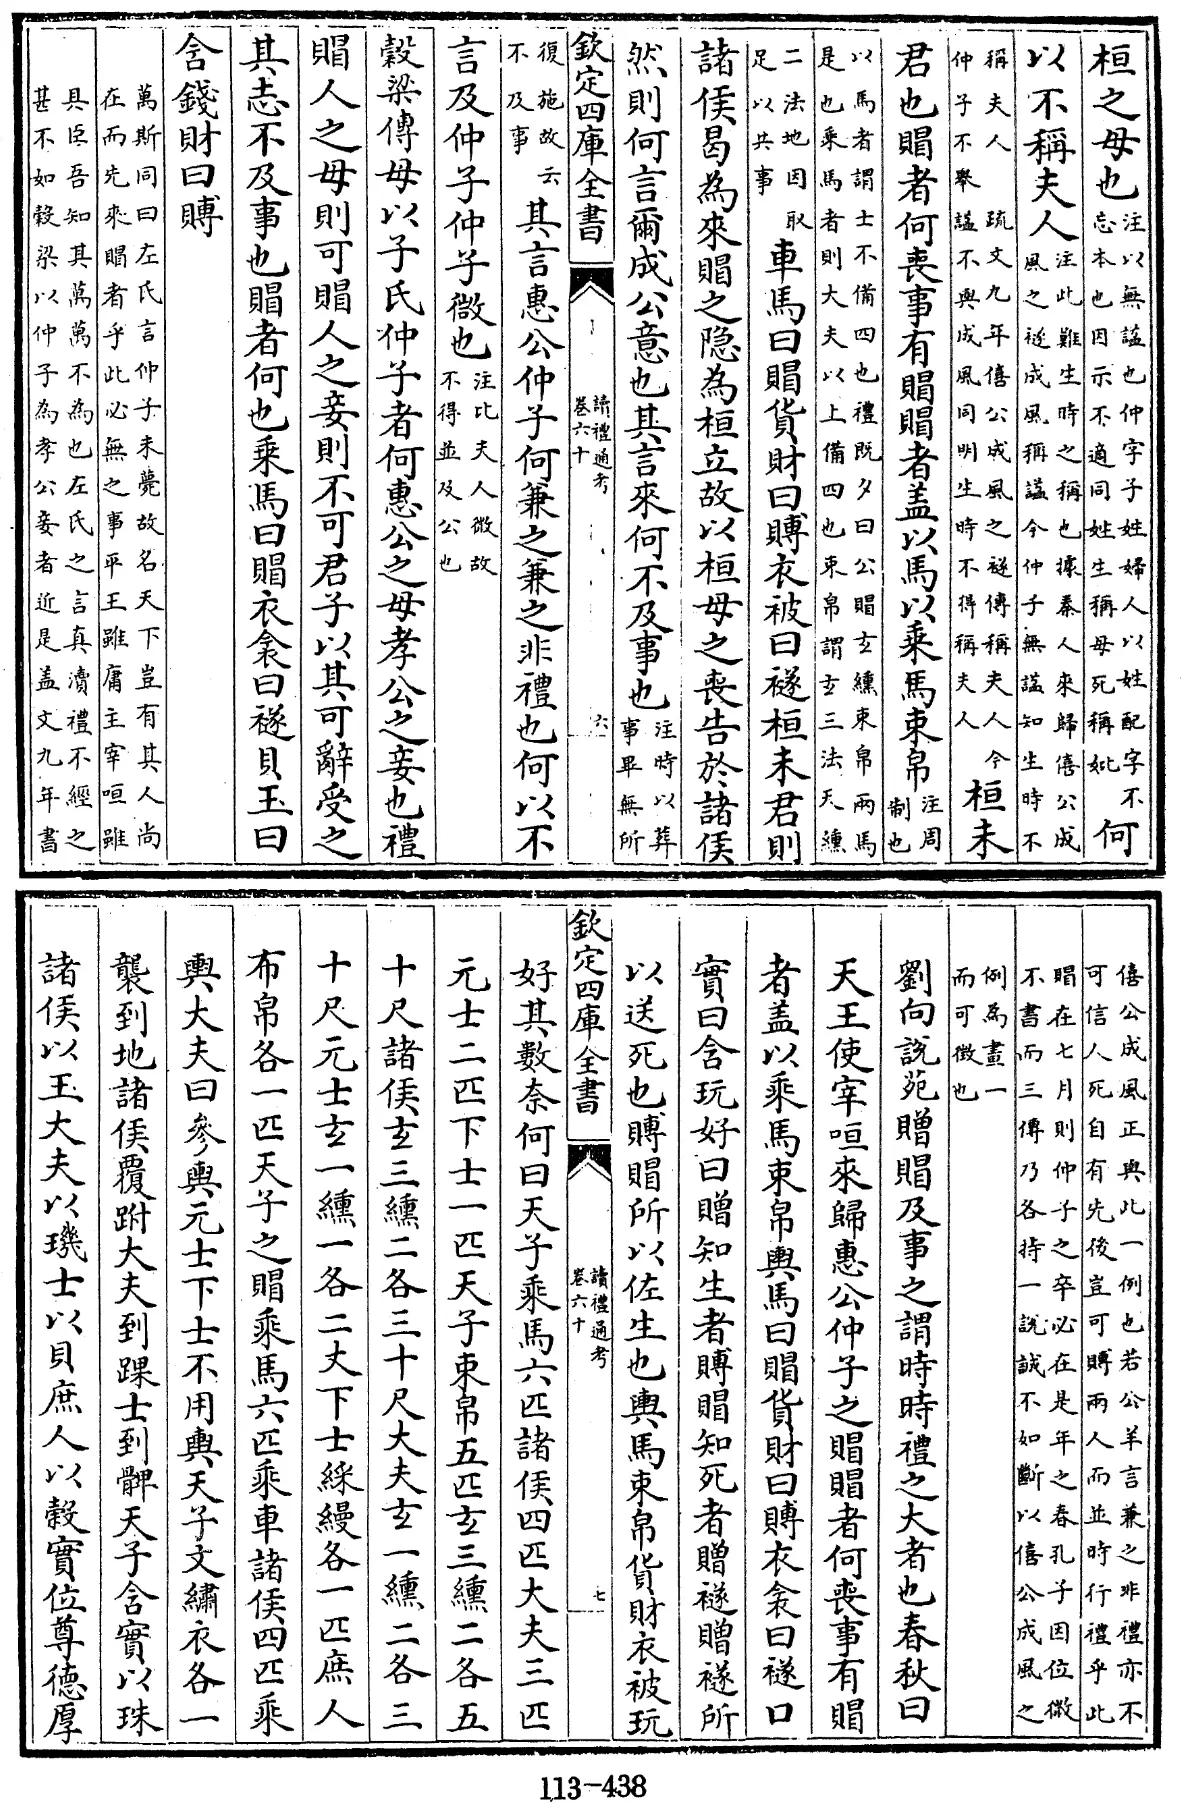 桓之母也注以無諡也仲字子姓婦人以姓配字不忘本也因示不適同姓生稱母死稱妣何
以不稱夫人注此難生時之稱也據秦人來歸僖公成風之襚成風稱諡今仲子無諡知生時不
稱夫人 疏文九年僖公成風之襚傳稱夫人今仲子不舉諡不與成風同明生時不得稱夫人桓未
君也賵者何喪事有賵賵者盖以馬以乘馬束帛注周制也
以馬者謂士不備四也禮既夕曰公賵玄纁束帛兩馬是也乘馬者則大夫以上備四也束帛謂玄三法天纁
二法地因取足以共事車馬曰賵貨財曰賻衣被曰襚桓未君則
諸侯曷為來賵之隐為桓立故以桓母之喪告於諸侯
然則何言爾成公意也其言來何不及事也注時以葬事畢無所
復施故云不及事其言惠公仲子何兼之兼之非禮也何以不
言及仲子仲子微也注比夫人微故不得並及公也
榖梁傳母以子氏仲子者何惠公之母孝公之妾也禮
賵人之母則可賵人之妾則不可君子以其可辭受之
其志不及事也賵者何也乘馬曰賵衣衾曰襚貝玉曰
含錢財曰賻
萬斯同曰左氏言仲子未薨故名天下豈有其人尚在而先來賵者乎此必無之事平王雖庸主宰咺雖
具臣吾知其萬萬不為也左氏之言真瀆禮不經之甚不如榖梁以仲子為孝公妾者近是盖文九年書
欽定四庫全書
讀禮通考
卷六十
六
僖公成風正與此一例也若公羊言兼之非禮亦不可信人死自有先後豈可賻兩人而並時行禮乎此
賵在七月則仲子之卒必在是年之春孔子因位微不書而三傳乃各持一說誠不如斷以僖公成風之
例為畫一而可徵也
劉向說苑贈賵及事之謂時時禮之大者也春秋曰
天王使宰咺來歸惠公仲子之賵賵者何喪事有賵
者盖以乘馬束帛輿馬曰賵貨財曰賻衣衾曰襚口
實曰含玩好曰贈知生者賻賵知死者贈襚贈襚所
以送死也賻賵所以佐生也輿馬束帛貨財衣被玩
好其數奈何曰天子乘馬六匹諸侯四匹大夫三匹
元士二匹下士一匹天子束帛五匹玄三纁二各五
十尺諸侯玄三纁二各三十尺大夫玄一纁二各三
十尺元士玄一纁一各二丈下士綵縵各一匹庶人
布帛各一匹天子之賵乘馬六匹乘車諸侯四匹乘
輿大夫曰參輿元士下士不用輿天子文繡衣各一
襲到地諸侯覆跗大夫到踝士到髀天子含實以珠
諸侯以玉大夫以璣士以貝庶人以榖實位尊德厚
欽定四庫全書
讀禮通考
卷六十
七
113-438